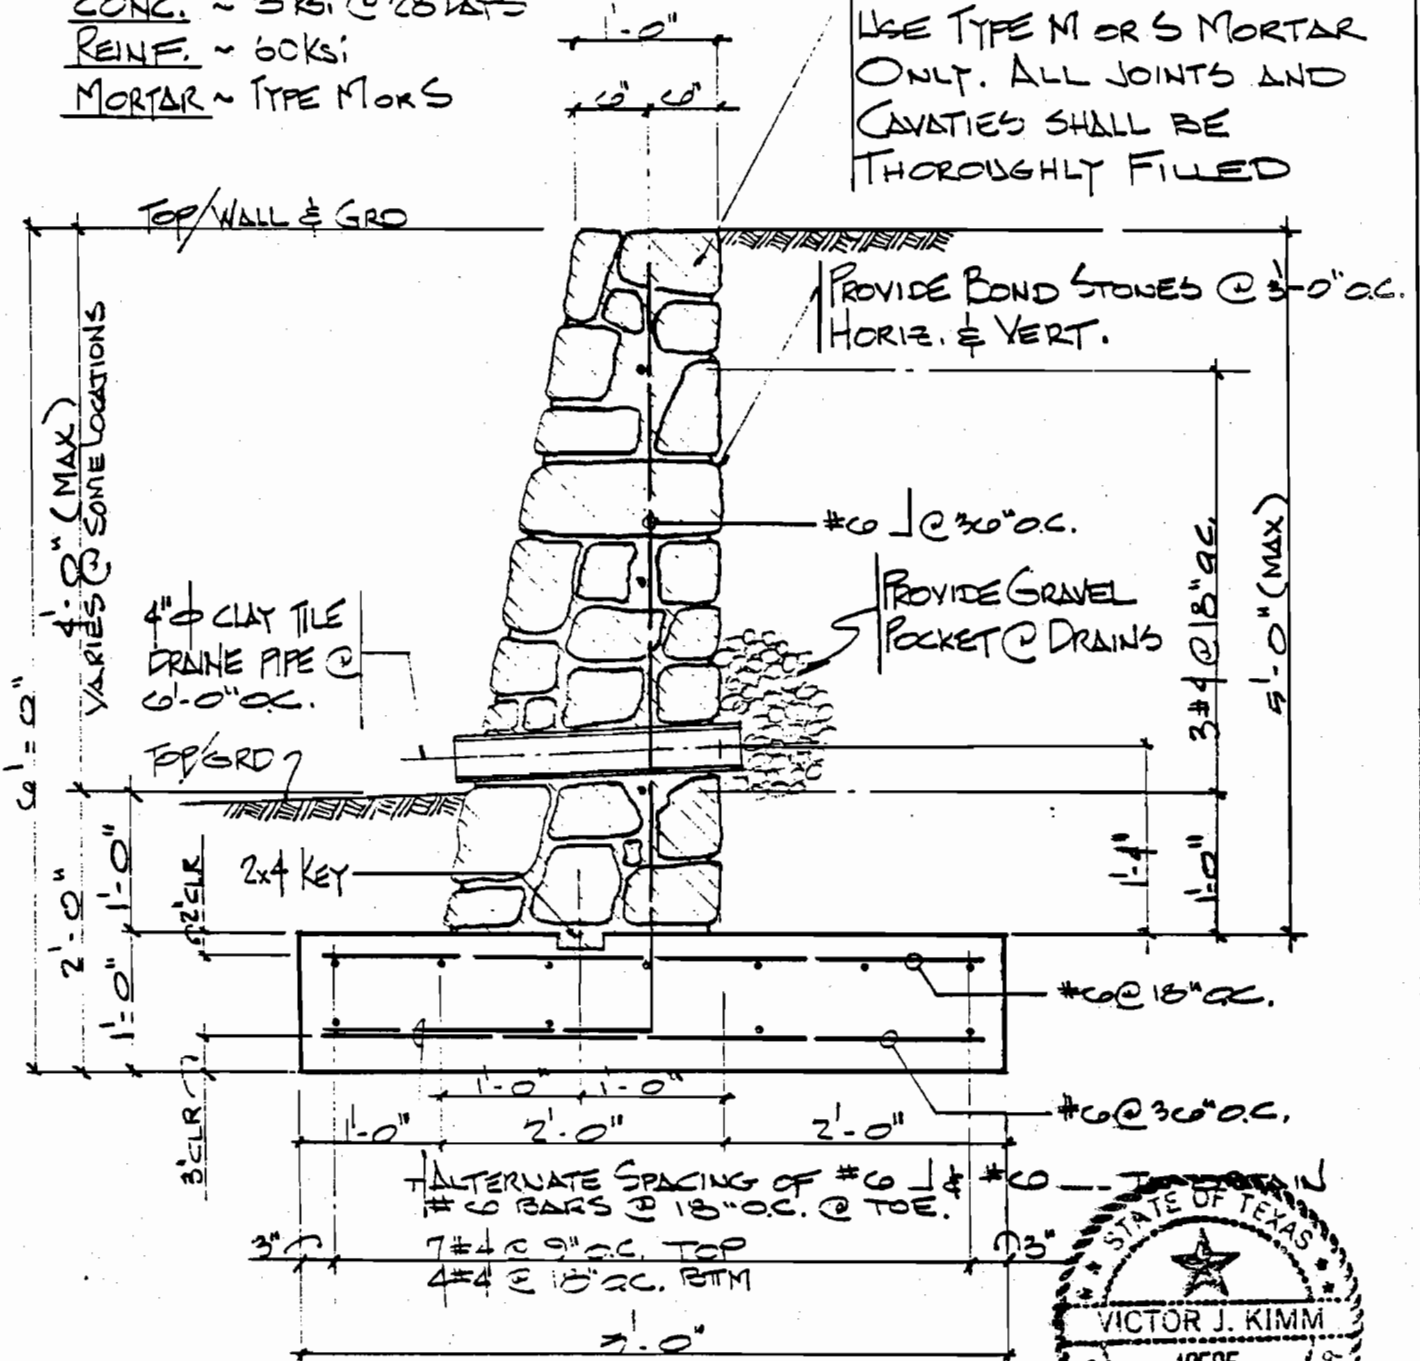 CONC. ~ 3 KSi @ 28 DAYS
REINF. ~ 60 Ksi
MORTAR ~ TYPE M OR S
1'-0"
6" 6"
USE TYPE M OR S MORTAR
ONLY. ALL JOINTS AND
CAVATIES SHALL BE
THOROUGHLY FILLED
TOP/WALL & GRD
PROVIDE BOND STONES @ 3'-0" O.C.
HORIZ. & VERT.
4'-0" (MAX)
VARIES @ SOME LOCATIONS
#6 ┘ @ 36" O.C.
PROVIDE GRAVEL
POCKET @ DRAINS
4"φ CLAY TILE
DRAINE PIPE @
6'-0" O.C.
TOP/GRD
3#4 @ 18" O.C.
5'-0" (MAX)
6'-0"
2x4 KEY
1'-4"
1'-0"
2'-0"
1'-0"
1'-0"
2" CLR
3" CLR
#6 @ 18" O.C.
#6 @ 36" O.C.
1'-0" 1'-0"
1'-0" 2'-0" 2'-0"
ALTERNATE SPACING OF #6 ┘ & #6
#6 BARS @ 18" O.C. @ TOE.
3" 3"
7#4 @ 9" O.C. TOP
4#4 @ 18" O.C. BTM
5'-0"
STATE OF TEXAS
VICTOR J. KIMM